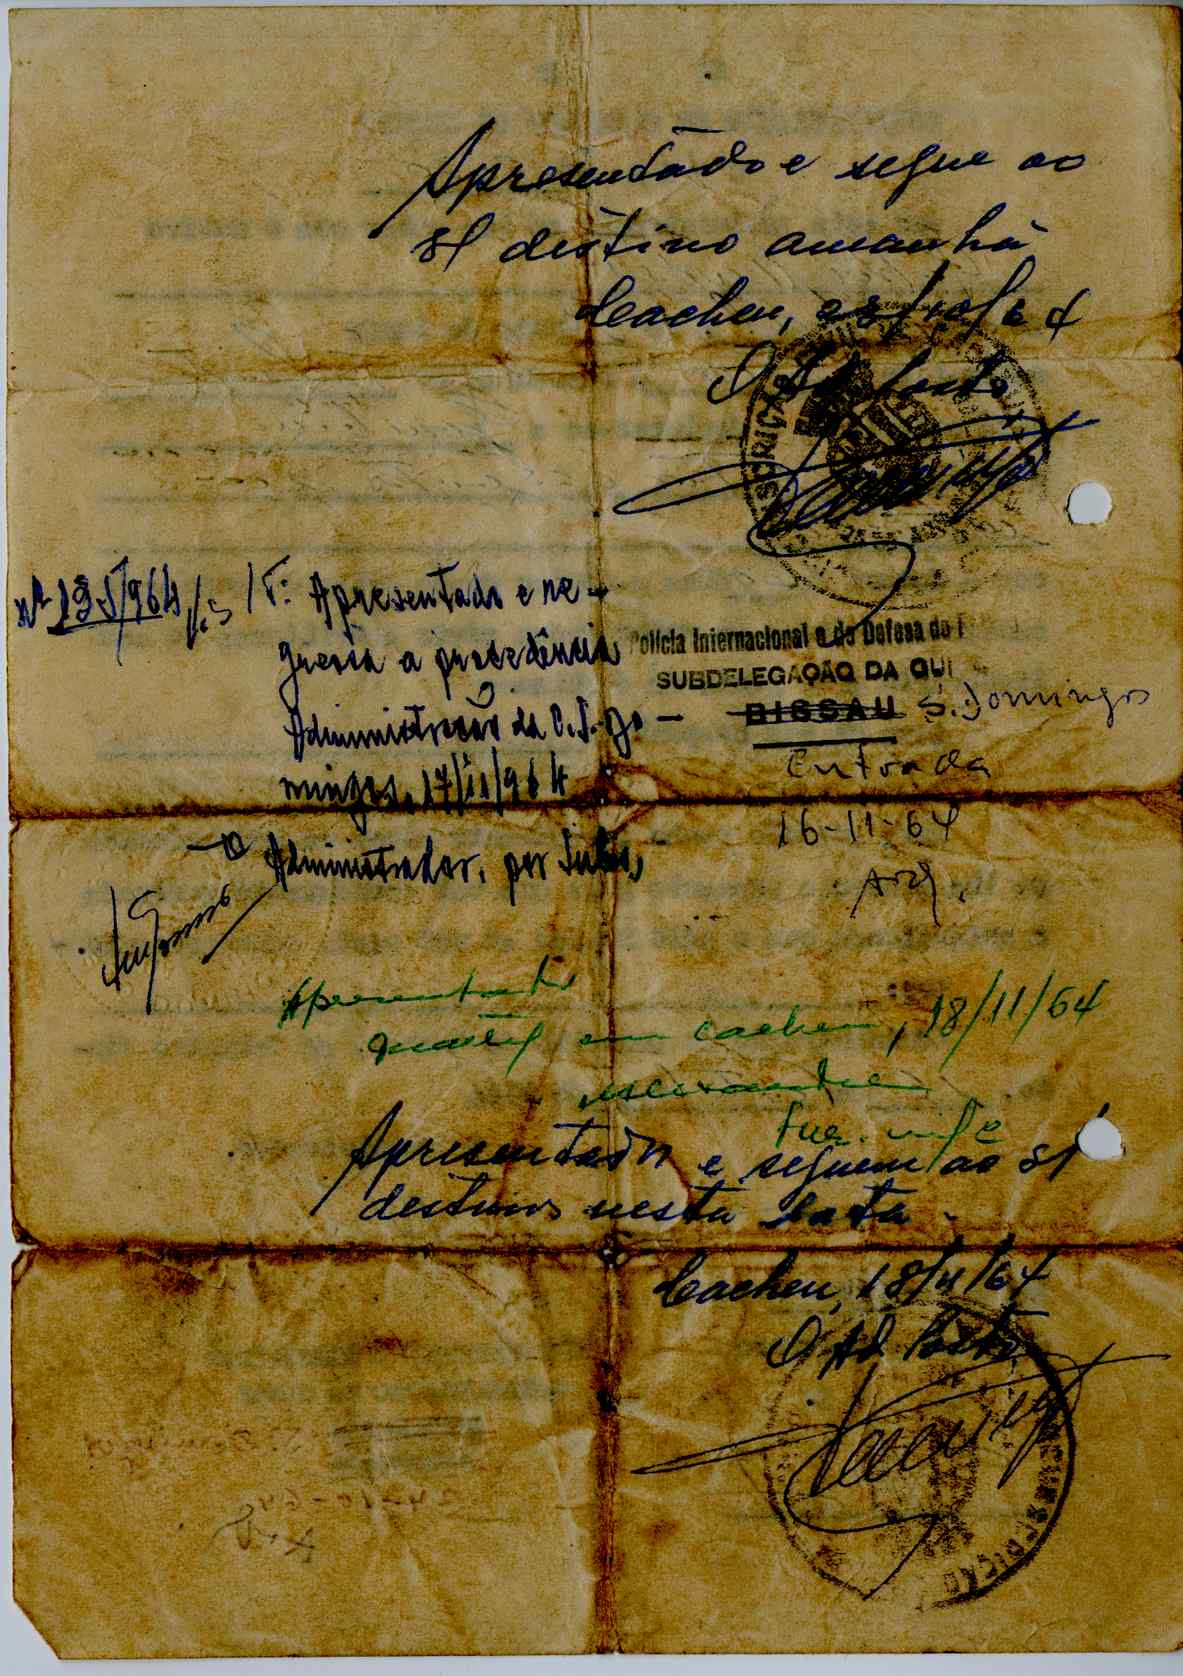 Apresentado e segue ao
s/ destino amanhã
Cacheu, 23/10/64
O Ad. Posto
SCRIÇÃO
Nº 195/964
Apresentado e re-
gressa a procedência
Administração do C. S. Do-
mingos, 17/11/964
O Administrador, por
Polícia Internacional e de Defesa do
SUBDELEGAÇÃO DA GUI
BISSAU S. Domingos
Entrada
16-11-64
Apresentado
em Cacheu, 18/11/64
Apresentado e seguem ao s/
destinos nesta data.
Cacheu, 18/11/64
O Ad. Posto